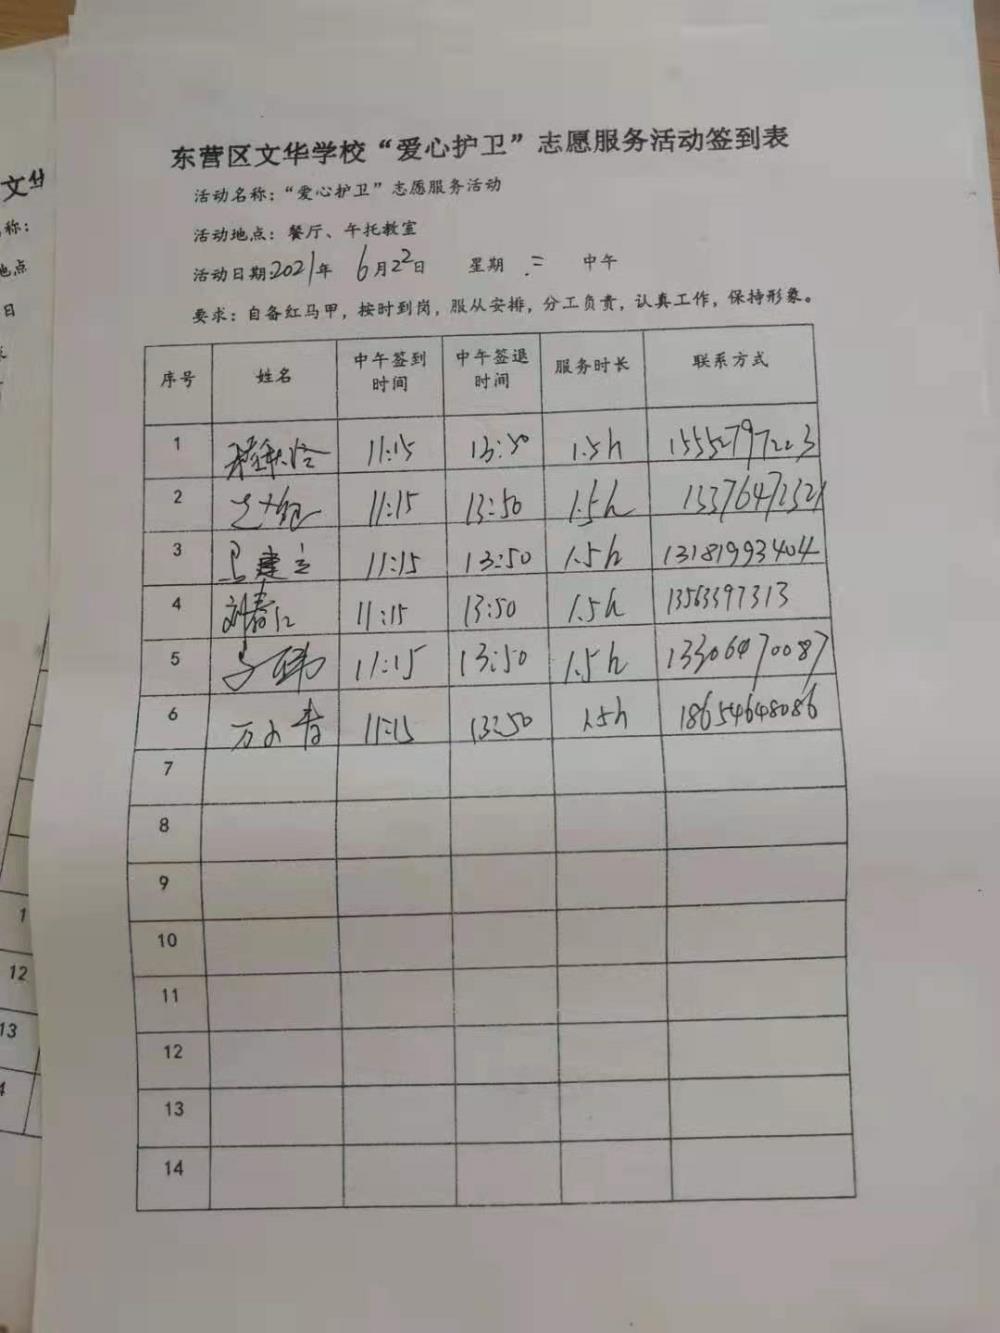 东营区文华学校“爱心护卫”志愿服务活动签到表
活动名称：“爱心护卫”志愿服务活动
活动地点：餐厅、午托教室
活动日期:2021年 6月22日 星期 二 中午
要求：自备红马甲，按时到岗，服从安排，分工负责，认真工作，保持形象。
序号 姓名 中午签到时间 中午签退时间 服务时长 联系方式
1 11:15 13:50 1.5h 15552797223
2 11:15 13:50 1.5h 13376472321
3 马建立 11:15 13:50 1.5h 13181993404
4 刘春江 11:15 13:50 1.5h 13563397313
5 11:15 13:50 1.5h 13306470087
6 万小青 11:15 13:50 1.5h 18654648086
7
8
9
10
11
12
13
14
文华
称：
地点
日
1
12
13
4